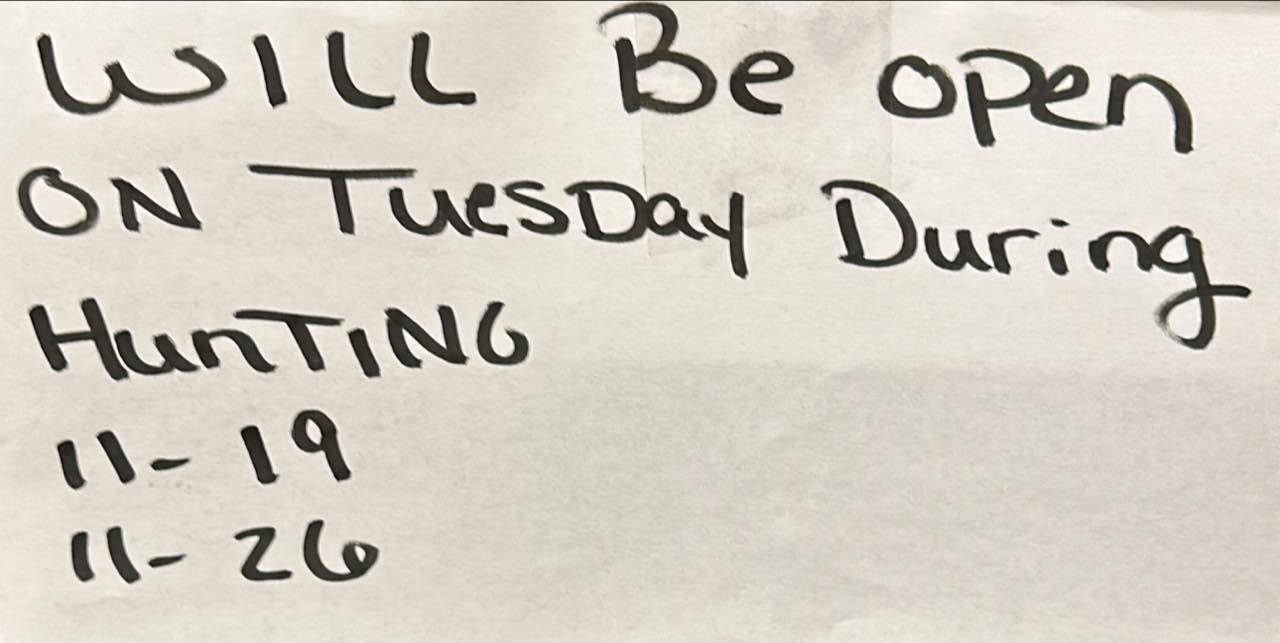 WILL Be open
ON TuesDay During
HunTING
11-19
11-26